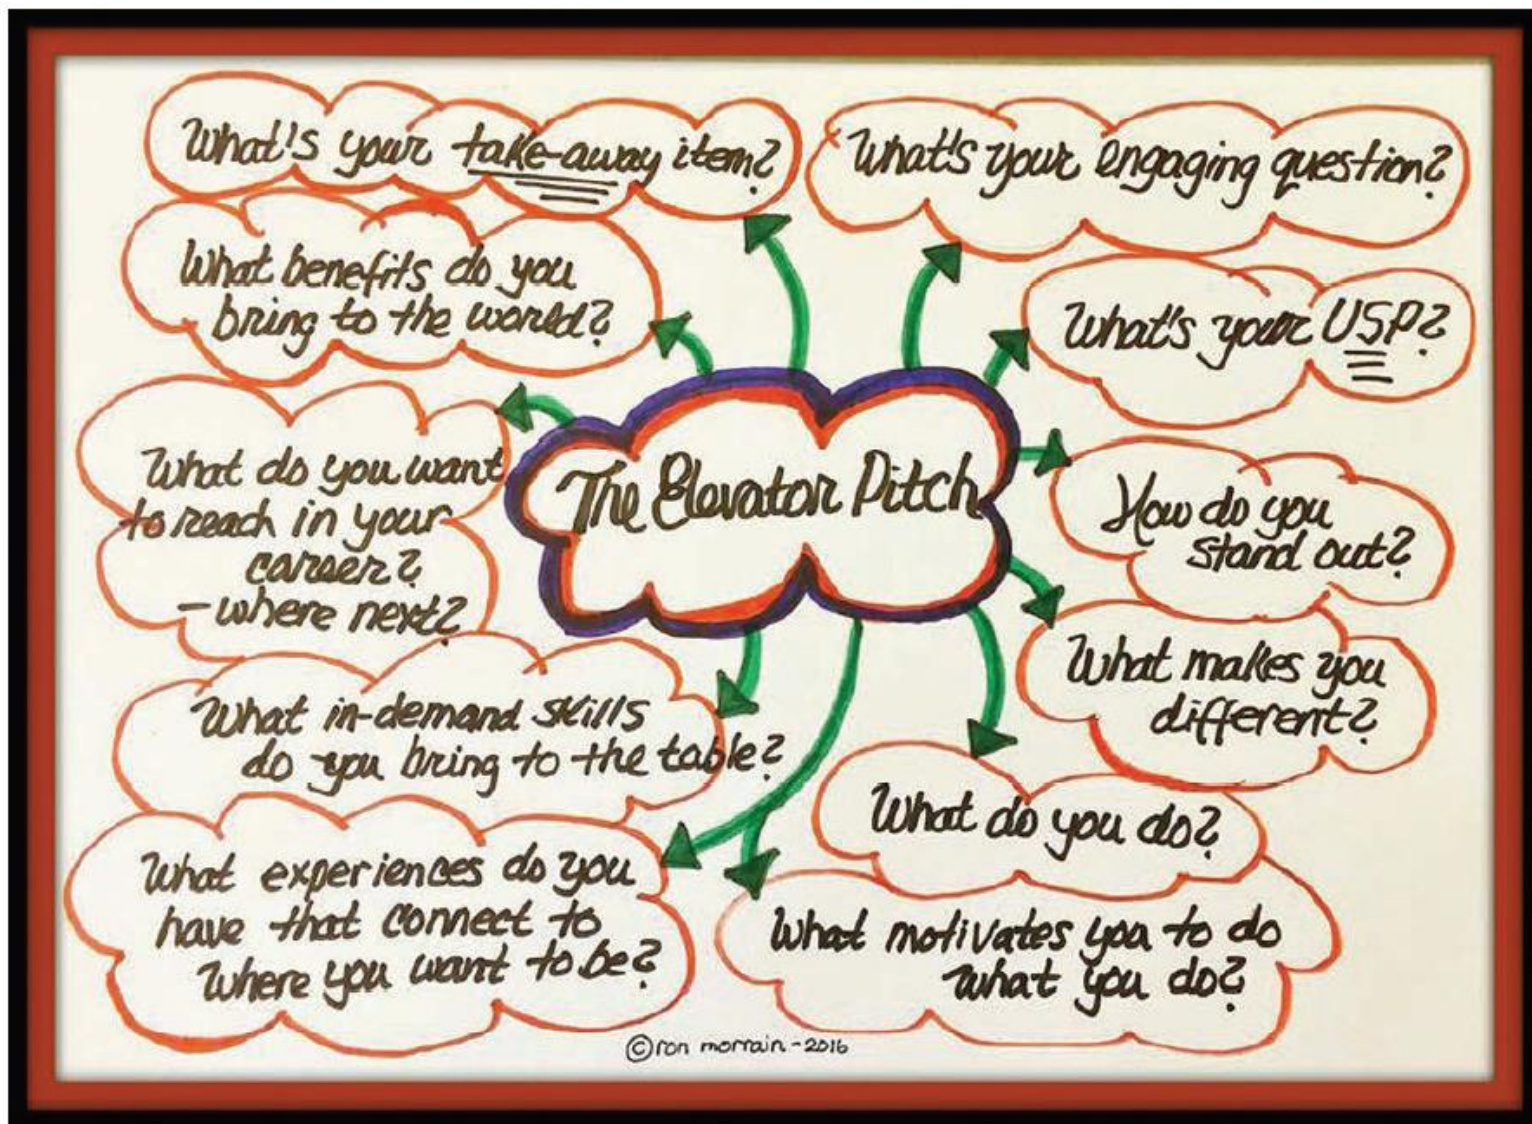 What's your take-away item?
What's your engaging question?
What benefits do you
bring to the world?
What's your USP?
What do you want
to reach in your
career?
- where next?
The Elevator Pitch
How do you
stand out?
What makes you
different?
What in-demand skills
do you bring to the table?
What do you do?
What experiences do you
have that connect to
where you want to be?
What motivates you to do
what you do?
© ron morrain - 2016